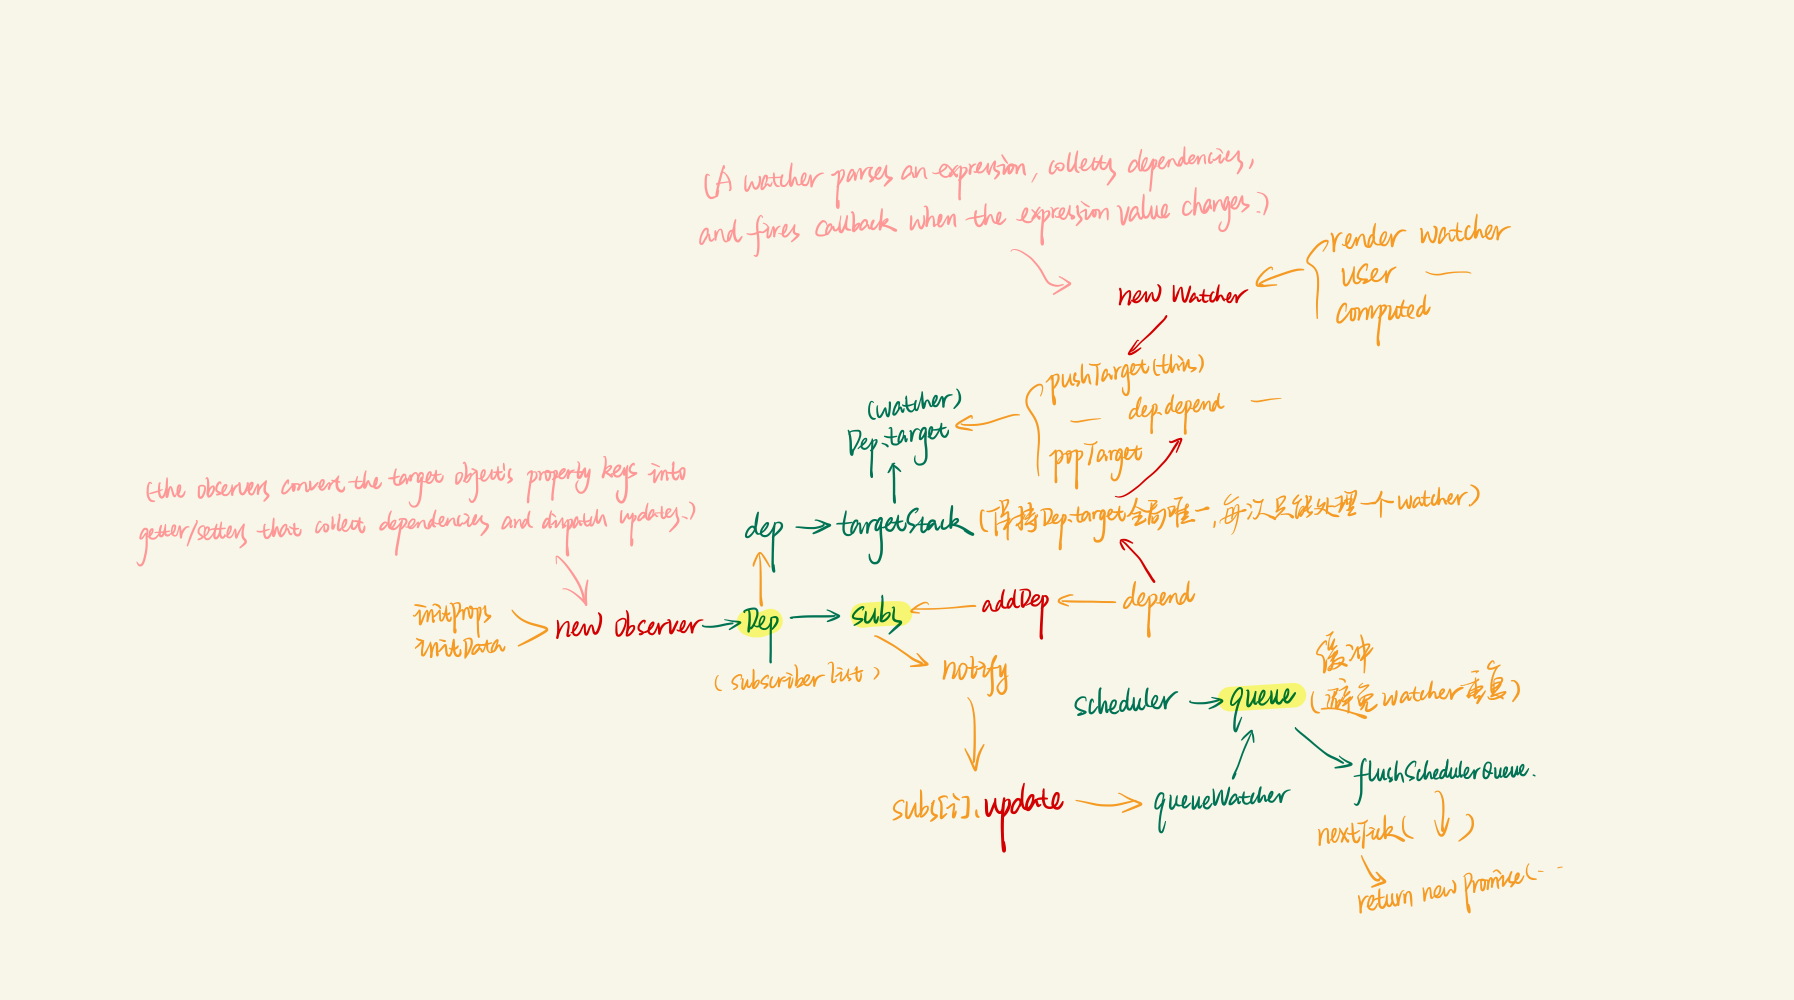 (A watcher parses an expression, collects dependencies,
and fires callback when the expression value changes.)
render watcher
user —
computed
new Watcher
pushTarget(this)
— dep.depend —
popTarget
(watcher)
Dep.target
(the observers convert the target object's property keys into
getter/setters that collect dependencies and dispatch updates.)
dep
targetStack
(保持Dep.target全局唯一,每次只能处理一个watcher)
initProps
initData
new Observer
Dep
subs
addDep
depend
(subscriber list)
notify
缓冲
scheduler
queue
(避免watcher重复)
flushSchedulerQueue.
subs[i].update
queueWatcher
nextTick( )
return new Promise(--